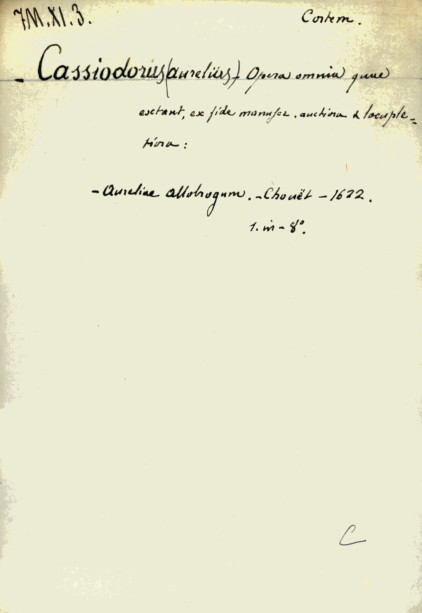 7M.XI.3.
Contem.
- Cassiodorus (aurelius) Opera omnia quae
exstant, ex fide manusc. auctiora & locuple=
tiora :
- Aureliae allobrogum. - Chouët - 1622.
1. in - 8°.
C